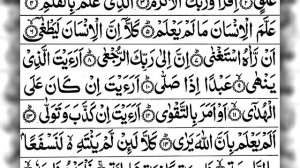 عَلَقٍ ۝ اِقْرَاْ وَرَبُّكَ الْاَكْرَمُ ۝ الَّذِیْ عَلَّمَ بِالْقَلَمِ ۝
عَلَّمَ الْاِنْسَانَ مَا لَمْ یَعْلَمْ ۝ كَلَّاۤ اِنَّ الْاِنْسَانَ لَیَطْغٰۤی ۝
اَنْ رَّاٰهُ اسْتَغْنٰی ۝ اِنَّ اِلٰی رَبِّكَ الرُّجْعٰی ۝ اَرَءَیْتَ الَّذِیْ
یَنْهٰی ۝ عَبْدًا اِذَا صَلّٰی ۝ اَرَءَیْتَ اِنْ كَانَ عَلَی
الْهُدٰۤی ۝ اَوْ اَمَرَ بِالتَّقْوٰی ۝ اَرَءَیْتَ اِنْ كَذَّبَ وَتَوَلّٰی ۝
اَلَمْ یَعْلَمْ بِاَنَّ اللّٰهَ یَرٰی ۝ كَلَّا لَىِٕنْ لَّمْ یَنْتَهِ ۙ۬ لَنَسْفَعًۢا